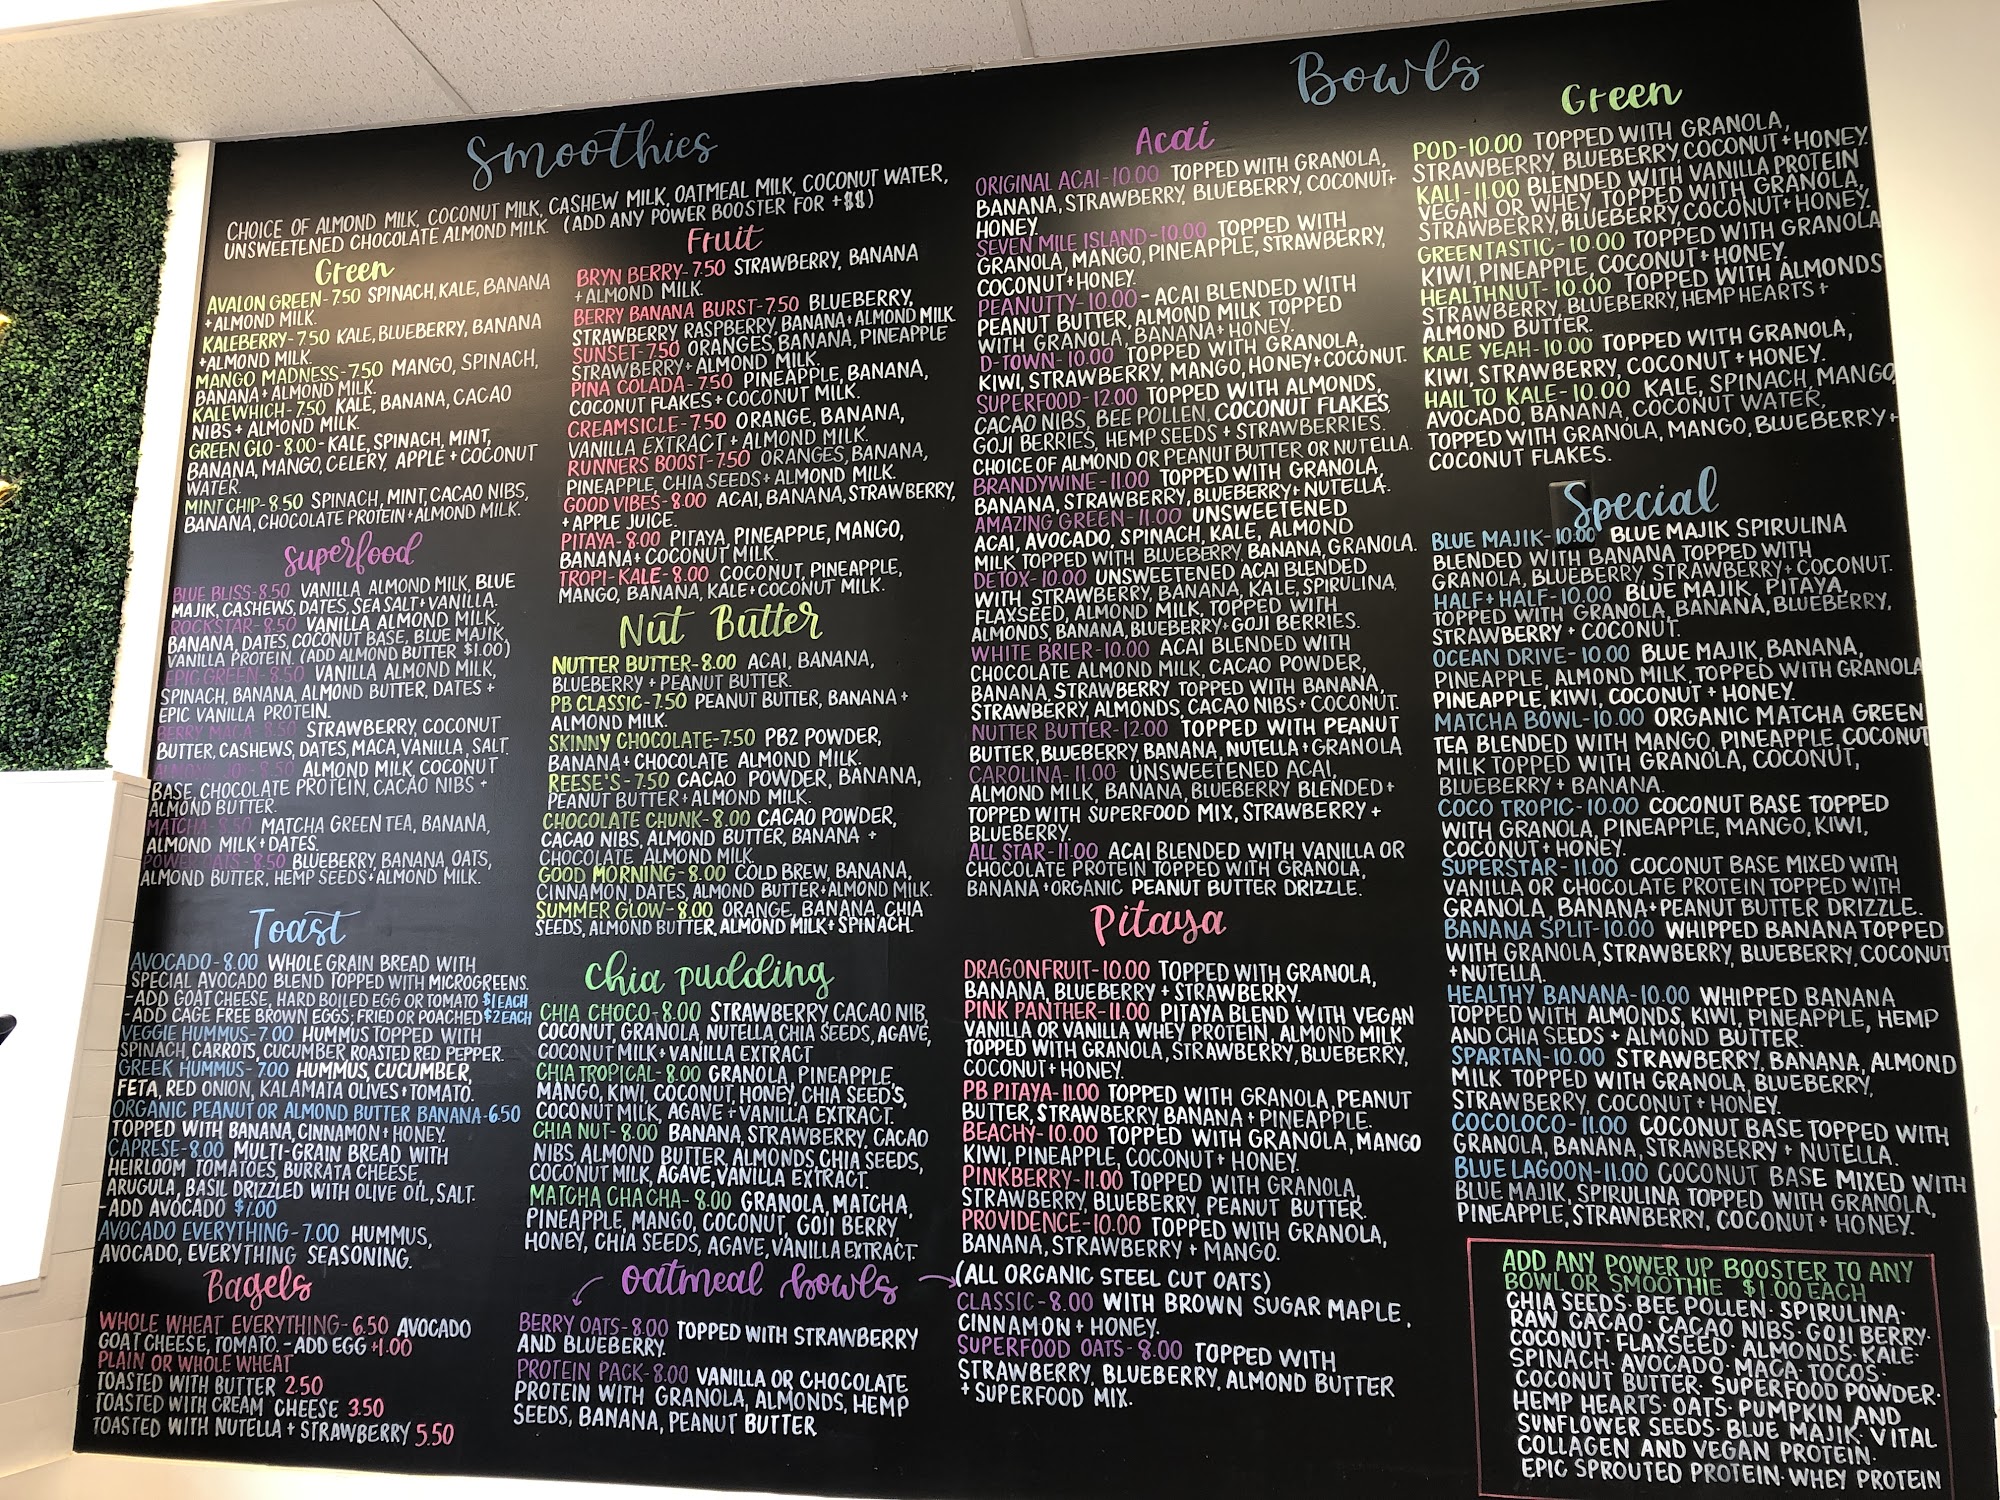 Smoothies
CHOICE OF ALMOND MILK, COCONUT MILK, CASHEW MILK, OATMEAL MILK, COCONUT WATER,
UNSWEETENED CHOCOLATE ALMOND MILK. (ADD ANY POWER BOOSTER FOR +$$)
Green
AVALON GREEN-7.50 SPINACH, KALE, BANANA
+ALMOND MILK.
KALEBERRY-7.50 KALE, BLUEBERRY, BANANA
+ALMOND MILK.
MANGO MADNESS-7.50 MANGO, SPINACH,
BANANA+ALMOND MILK.
KALEWHICH-7.50 KALE, BANANA, CACAO
NIBS+ALMOND MILK.
GREEN GLO-8.00-KALE, SPINACH, MINT,
BANANA, MANGO, CELERY, APPLE+COCONUT
WATER.
MINT CHIP-8.50 SPINACH, MINT, CACAO NIBS,
BANANA, CHOCOLATE PROTEIN+ALMOND MILK.
Superfood
BLUE BLISS-8.50 VANILLA ALMOND MILK, BLUE
MAJIK, CASHEWS, DATES, SEA SALT+VANILLA.
ROCKSTAR-8.50 VANILLA ALMOND MILK,
BANANA, DATES, COCONUT BASE, BLUE MAJIK,
VANILLA PROTEIN. (ADD ALMOND BUTTER $1.00)
EPIC GREEN-8.50 VANILLA ALMOND MILK,
SPINACH, BANANA, ALMOND BUTTER, DATES +
EPIC VANILLA PROTEIN.
BERRY MACA-8.50 STRAWBERRY, COCONUT
BUTTER, CASHEWS, DATES, MACA, VANILLA, SALT.
ALMOND JOY-8.50 ALMOND MILK, COCONUT
BASE, CHOCOLATE PROTEIN, CACAO NIBS +
ALMOND BUTTER.
MATCHA-8.50 MATCHA GREEN TEA, BANANA,
ALMOND MILK+DATES.
POWER OATS-8.50 BLUEBERRY, BANANA, OATS,
ALMOND BUTTER, HEMP SEEDS+ALMOND MILK.
Toast
AVOCADO-8.00 WHOLE GRAIN BREAD WITH
SPECIAL AVOCADO BLEND TOPPED WITH MICROGREENS.
-ADD GOAT CHEESE, HARD BOILED EGG OR TOMATO $1 EACH
-ADD CAGE FREE BROWN EGGS; FRIED OR POACHED $2 EACH
VEGGIE HUMMUS-7.00 HUMMUS TOPPED WITH
SPINACH, CARROTS, CUCUMBER, ROASTED RED PEPPER.
GREEK HUMMUS-7.00 HUMMUS, CUCUMBER,
FETA, RED ONION, KALAMATA OLIVES+TOMATO.
ORGANIC PEANUT OR ALMOND BUTTER BANANA-6.50
TOPPED WITH BANANA, CINNAMON+HONEY.
CAPRESE-8.00 MULTI-GRAIN BREAD WITH
HEIRLOOM TOMATOES, BURRATA CHEESE,
ARUGULA, BASIL DRIZZLED WITH OLIVE OIL, SALT.
-ADD AVOCADO $1.00
AVOCADO EVERYTHING-7.00 HUMMUS,
AVOCADO, EVERYTHING SEASONING.
Bagels
WHOLE WHEAT EVERYTHING-6.50 AVOCADO
GOAT CHEESE, TOMATO. -ADD EGG +1.00
PLAIN OR WHOLE WHEAT
TOASTED WITH BUTTER 2.50
TOASTED WITH CREAM CHEESE 3.50
TOASTED WITH NUTELLA + STRAWBERRY 5.50
Fruit
BRYN BERRY-7.50 STRAWBERRY, BANANA
+ALMOND MILK.
BERRY BANANA BURST-7.50 BLUEBERRY,
STRAWBERRY RASPBERRY, BANANA+ALMOND MILK.
SUNSET-7.50 ORANGES, BANANA, PINEAPPLE
STRAWBERRY+ALMOND MILK.
PINA COLADA-7.50 PINEAPPLE, BANANA,
COCONUT FLAKES+COCONUT MILK.
CREAMSICLE-7.50 ORANGE, BANANA,
VANILLA EXTRACT+ALMOND MILK.
RUNNERS BOOST-7.50 ORANGES, BANANA,
PINEAPPLE, CHIA SEEDS+ALMOND MILK.
GOOD VIBES-8.00 ACAI, BANANA, STRAWBERRY,
+APPLE JUICE.
PITAYA-8.00 PITAYA, PINEAPPLE, MANGO,
BANANA+COCONUT MILK.
TROPI-KALE-8.00 COCONUT, PINEAPPLE,
MANGO, BANANA, KALE+COCONUT MILK.
Nut Butter
NUTTER BUTTER-8.00 ACAI, BANANA,
BLUEBERRY + PEANUT BUTTER.
PB CLASSIC-7.50 PEANUT BUTTER, BANANA +
ALMOND MILK.
SKINNY CHOCOLATE-7.50 PB2 POWDER,
BANANA+CHOCOLATE ALMOND MILK.
REESE'S-7.50 CACAO POWDER, BANANA,
PEANUT BUTTER+ALMOND MILK.
CHOCOLATE CHUNK-8.00 CACAO POWDER,
CACAO NIBS, ALMOND BUTTER, BANANA +
CHOCOLATE ALMOND MILK.
GOOD MORNING-8.00 COLD BREW, BANANA,
CINNAMON, DATES, ALMOND BUTTER+ALMOND MILK.
SUMMER GLOW-8.00 ORANGE, BANANA, CHIA
SEEDS, ALMOND BUTTER, ALMOND MILK+SPINACH.
Chia Pudding
CHIA CHOCO-8.00 STRAWBERRY CACAO NIB,
COCONUT, GRANOLA, NUTELLA, CHIA SEEDS, AGAVE,
COCONUT MILK+VANILLA EXTRACT
CHIA TROPICAL-8.00 GRANOLA, PINEAPPLE,
MANGO, KIWI, COCONUT, HONEY, CHIA SEEDS,
COCONUT MILK, AGAVE+VANILLA EXTRACT.
CHIA NUT-8.00 BANANA, STRAWBERRY, CACAO
NIBS, ALMOND BUTTER, ALMONDS, CHIA SEEDS,
COCONUT MILK, AGAVE, VANILLA EXTRACT.
MATCHA CHA CHA-8.00 GRANOLA, MATCHA,
PINEAPPLE, MANGO, COCONUT, GOJI BERRY,
HONEY, CHIA SEEDS, AGAVE, VANILLA EXTRACT.
Oatmeal Bowls
(ALL ORGANIC STEEL CUT OATS)
BERRY OATS-8.00 TOPPED WITH STRAWBERRY
AND BLUEBERRY.
PROTEIN PACK-8.00 VANILLA OR CHOCOLATE
PROTEIN WITH GRANOLA, ALMONDS, HEMP
SEEDS, BANANA, PEANUT BUTTER
CLASSIC-8.00 WITH BROWN SUGAR MAPLE,
CINNAMON + HONEY.
SUPERFOOD OATS-8.00 TOPPED WITH
STRAWBERRY, BLUEBERRY, ALMOND BUTTER
+ SUPERFOOD MIX.
Bowls
Acai
ORIGINAL ACAI-10.00 TOPPED WITH GRANOLA,
BANANA, STRAWBERRY, BLUEBERRY, COCONUT+
HONEY.
SEVEN MILE ISLAND-10.00 TOPPED WITH
GRANOLA, MANGO, PINEAPPLE, STRAWBERRY,
COCONUT+HONEY.
PEANUTTY-10.00-ACAI BLENDED WITH
PEANUT BUTTER, ALMOND MILK TOPPED
WITH GRANOLA, BANANA+HONEY.
D-TOWN-10.00 TOPPED WITH GRANOLA,
KIWI, STRAWBERRY, MANGO, HONEY+COCONUT.
SUPERFOOD-12.00 TOPPED WITH ALMONDS,
CACAO NIBS, BEE POLLEN, COCONUT FLAKES,
GOJI BERRIES, HEMP SEEDS + STRAWBERRIES.
CHOICE OF ALMOND OR PEANUT BUTTER OR NUTELLA.
BRANDYWINE-11.00 TOPPED WITH GRANOLA,
BANANA, STRAWBERRY, BLUEBERRY+NUTELLA.
AMAZING GREEN-11.00 UNSWEETENED
ACAI, AVOCADO, SPINACH, KALE, ALMOND
MILK TOPPED WITH BLUEBERRY, BANANA, GRANOLA.
DETOX-10.00 UNSWEETENED ACAI BLENDED
WITH STRAWBERRY, BANANA, KALE, SPIRULINA,
FLAXSEED, ALMOND MILK, TOPPED WITH
ALMONDS, BANANA, BLUEBERRY+GOJI BERRIES.
WHITE BRIER-10.00 ACAI BLENDED WITH
CHOCOLATE ALMOND MILK, CACAO POWDER,
BANANA, STRAWBERRY TOPPED WITH BANANA,
STRAWBERRY, ALMONDS, CACAO NIBS+COCONUT.
NUTTER BUTTER-12.00 TOPPED WITH PEANUT
BUTTER, BLUEBERRY, BANANA, NUTELLA+GRANOLA
CAROLINA-11.00 UNSWEETENED ACAI,
ALMOND MILK, BANANA, BLUEBERRY BLENDED+
TOPPED WITH SUPERFOOD MIX, STRAWBERRY +
BLUEBERRY.
ALL STAR-11.00 ACAI BLENDED WITH VANILLA OR
CHOCOLATE PROTEIN TOPPED WITH GRANOLA,
BANANA+ORGANIC PEANUT BUTTER DRIZZLE.
Pitaya
DRAGONFRUIT-10.00 TOPPED WITH GRANOLA,
BANANA, BLUEBERRY + STRAWBERRY.
PINK PANTHER-11.00 PITAYA BLEND WITH VEGAN
VANILLA OR VANILLA WHEY PROTEIN, ALMOND MILK
TOPPED WITH GRANOLA, STRAWBERRY, BLUEBERRY,
COCONUT+HONEY.
PB PITAYA-11.00 TOPPED WITH GRANOLA, PEANUT
BUTTER, STRAWBERRY BANANA + PINEAPPLE.
BEACHY-10.00 TOPPED WITH GRANOLA, MANGO
KIWI, PINEAPPLE, COCONUT+HONEY.
PINKBERRY-11.00 TOPPED WITH GRANOLA,
STRAWBERRY, BLUEBERRY, PEANUT BUTTER.
PROVIDENCE-10.00 TOPPED WITH GRANOLA,
BANANA, STRAWBERRY + MANGO.
Green
POD-10.00 TOPPED WITH GRANOLA,
STRAWBERRY, BLUEBERRY, COCONUT+HONEY.
KALI-11.00 BLENDED WITH VANILLA PROTEIN
VEGAN OR WHEY, TOPPED WITH GRANOLA,
STRAWBERRY, BLUEBERRY, COCONUT+HONEY.
GREENTASTIC-10.00 TOPPED WITH GRANOLA
KIWI, PINEAPPLE, COCONUT+HONEY.
HEALTHNUT-10.00 TOPPED WITH ALMONDS
STRAWBERRY, BLUEBERRY, HEMP HEARTS +
ALMOND BUTTER.
KALE YEAH-10.00 TOPPED WITH GRANOLA,
KIWI, STRAWBERRY, COCONUT+HONEY.
HAIL TO KALE-10.00 KALE, SPINACH, MANGO,
AVOCADO, BANANA, COCONUT WATER,
TOPPED WITH GRANOLA, MANGO, BLUEBERRY+
COCONUT FLAKES.
Special
BLUE MAJIK-10.00 BLUE MAJIK SPIRULINA
BLENDED WITH BANANA TOPPED WITH
GRANOLA, BLUEBERRY, STRAWBERRY+COCONUT.
HALF+HALF-10.00 BLUE MAJIK, PITAYA,
TOPPED WITH GRANOLA, BANANA, BLUEBERRY,
STRAWBERRY + COCONUT.
OCEAN DRIVE-10.00 BLUE MAJIK, BANANA,
PINEAPPLE, ALMOND MILK, TOPPED WITH GRANOLA
PINEAPPLE, KIWI, COCONUT + HONEY.
MATCHA BOWL-10.00 ORGANIC MATCHA GREEN
TEA BLENDED WITH MANGO, PINEAPPLE, COCONUT
MILK TOPPED WITH GRANOLA, COCONUT,
BLUEBERRY + BANANA.
COCO TROPIC-10.00 COCONUT BASE TOPPED
WITH GRANOLA, PINEAPPLE, MANGO, KIWI,
COCONUT+HONEY.
SUPERSTAR-11.00 COCONUT BASE MIXED WITH
VANILLA OR CHOCOLATE PROTEIN TOPPED WITH
GRANOLA, BANANA+PEANUT BUTTER DRIZZLE.
BANANA SPLIT-10.00 WHIPPED BANANA TOPPED
WITH GRANOLA, STRAWBERRY, BLUEBERRY, COCONUT
+NUTELLA.
HEALTHY BANANA-10.00 WHIPPED BANANA
TOPPED WITH ALMONDS, KIWI, PINEAPPLE, HEMP
AND CHIA SEEDS + ALMOND BUTTER.
SPARTAN-10.00 STRAWBERRY, BANANA, ALMOND
MILK TOPPED WITH GRANOLA, BLUEBERRY,
STRAWBERRY, COCONUT + HONEY.
COCOLOCO-11.00 COCONUT BASE TOPPED WITH
GRANOLA, BANANA, STRAWBERRY + NUTELLA.
BLUE LAGOON-11.00 COCONUT BASE MIXED WITH
BLUE MAJIK, SPIRULINA TOPPED WITH GRANOLA,
PINEAPPLE, STRAWBERRY, COCONUT + HONEY.
ADD ANY POWER UP BOOSTER TO ANY
BOWL OR SMOOTHIE $1.00 EACH
CHIA SEEDS· BEE POLLEN· SPIRULINA·
RAW CACAO· CACAO NIBS· GOJI BERRY·
COCONUT· FLAXSEED· ALMONDS· KALE·
SPINACH· AVOCADO· MACA· TOCOS·
COCONUT BUTTER· SUPERFOOD POWDER·
HEMP HEARTS· OATS· PUMPKIN AND
SUNFLOWER SEEDS· BLUE MAJIK· VITAL
COLLAGEN AND VEGAN PROTEIN·
EPIC SPROUTED PROTEIN· WHEY PROTEIN